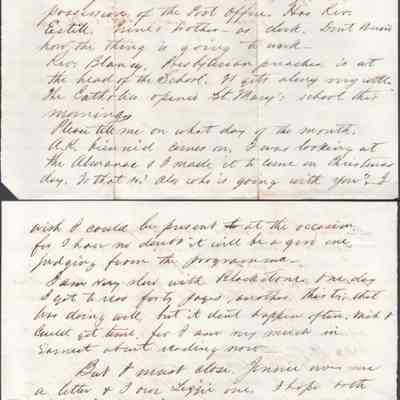 possession of the Post Office. Has Rev.
Estill, brother as clerk. Dont know
how the thing is going to work
Rev. Blaney, Presbyterian preacher is at
the head of the School. It gets along very well.
The Catholics opened St. Mary's school this
morning
Please tell me on what day of the month.
A.K. biennial comes on. I was looking at
the Almanac & I made it to come on Christmas
day. Is that so? Also who is going with you? I
wish I could be present to at the occasion,
for I have no doubt it will be a good one
judging from the programme.
I am very slow with Blackstone. One day
I got to read forty pages, another thirty, that
was doing well, but it dont happen often. Wish I
could get time, for I am very much in
Earnest about reading now.
But I must close. Jennie owes me
a letter & I owe Lizzie one. I hope both